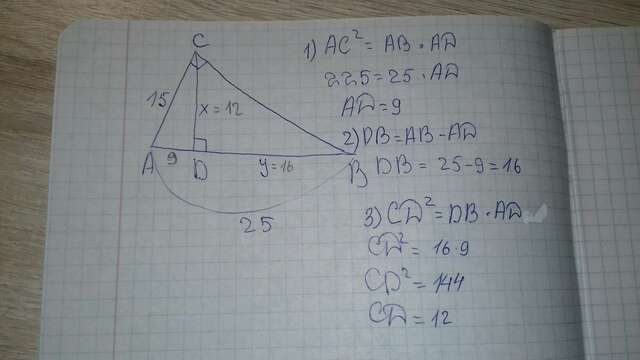 C
15
x = 12
A
9
D
y = 16
B
25
1) AC² = AB · AD
225 = 25 · AD
AD = 9
2) DB = AB - AD
DB = 25 - 9 = 16
3) CD² = DB · AD
CD² = 16 · 9
CD² = 144
CD = 12